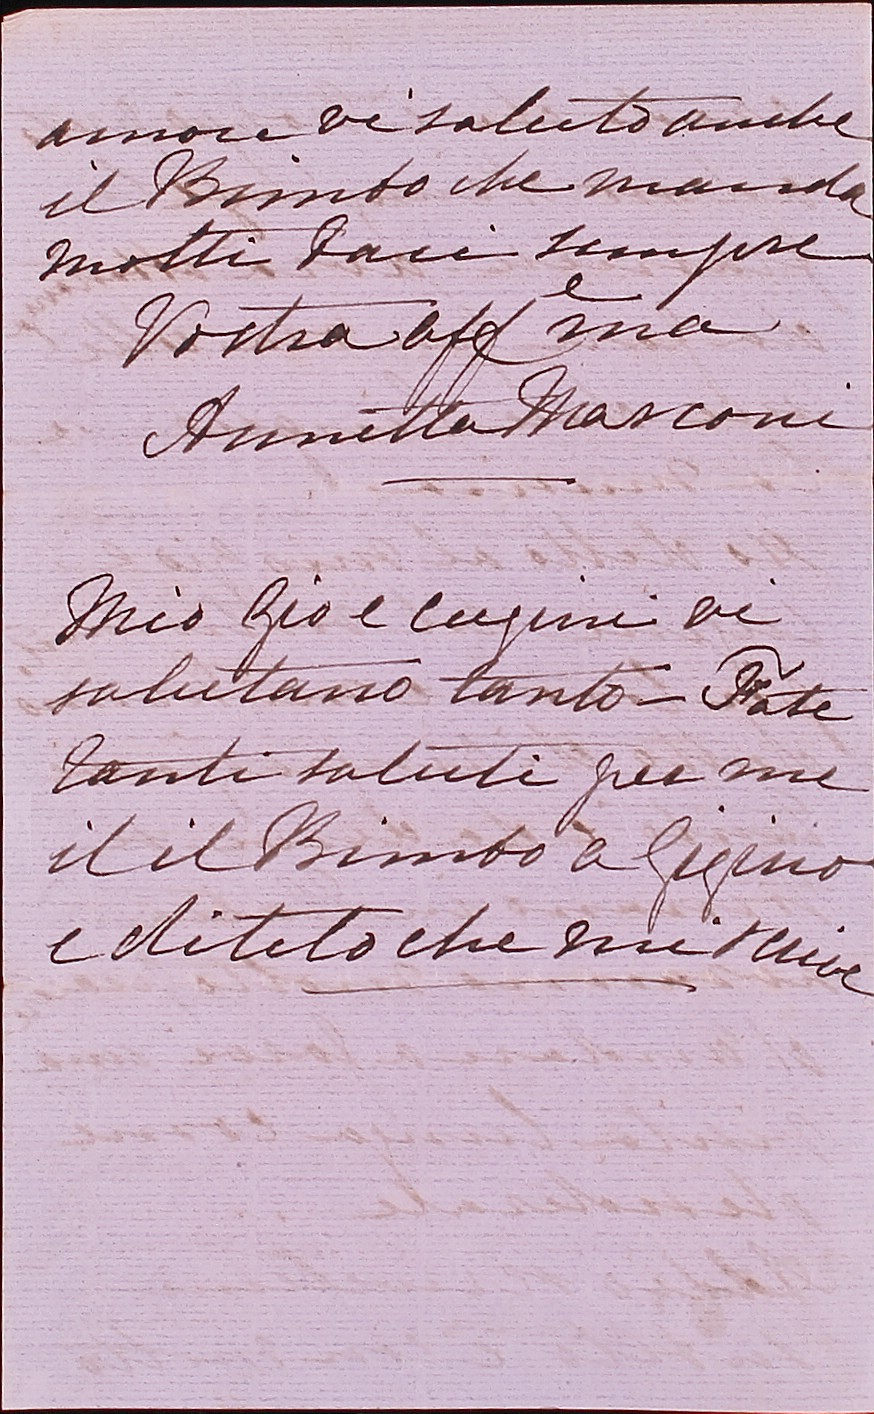 amore vi saluto anche
il Bimbo che manda
molti baci sempre
Vostra aff e ma
Annetta Marconi
Mio Zio e cugini vi
salutano tanto – Fate
tanti saluti per me
il il Bimbo a Gigino
e ditelo che mi scrive